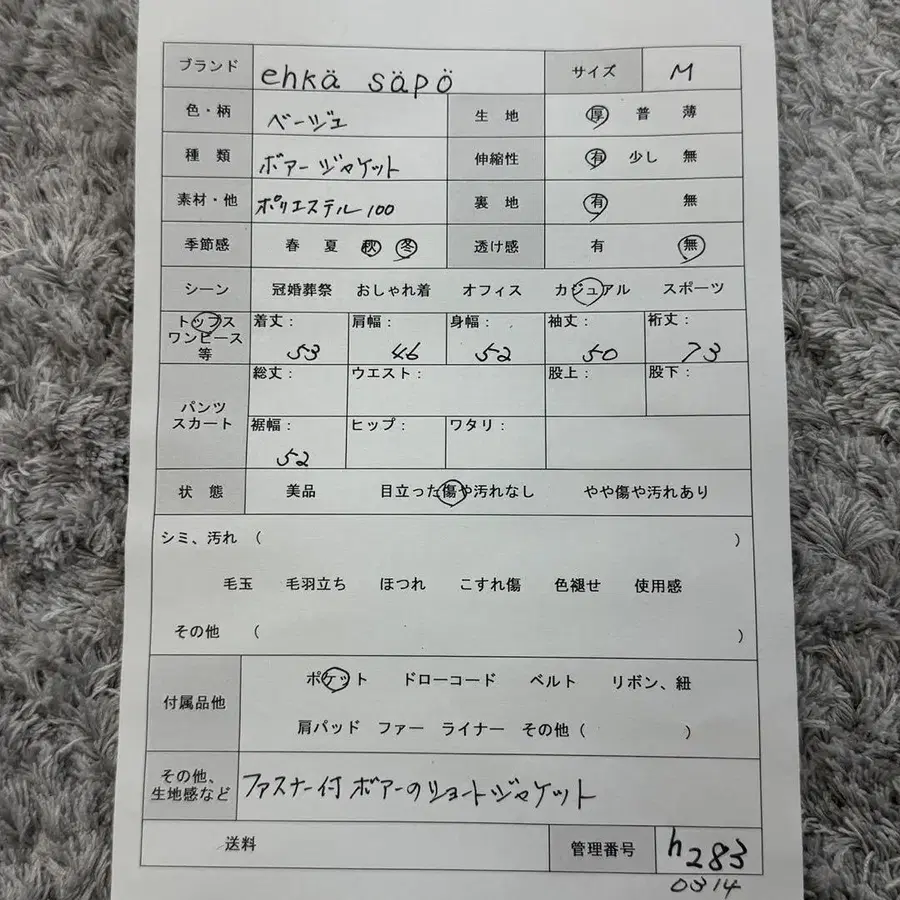 ブランド ehkä säpö サイズ M
色・柄 ベージュ 生 地 厚 普 薄
種 類 ボアージャケット 伸縮性 有 少し 無
素材・他 ポリエステル100 裏 地 有 無
季節感 春 夏 秋 冬 透け感 有 無
シーン 冠婚葬祭 おしゃれ着 オフィス カジュアル スポーツ
トップス 着丈: 肩幅: 身幅: 袖丈: 裄丈:
ワンピース
等 53 46 52 50 73
総丈: ウエスト: 股上: 股下:
パンツ
スカート 裾幅: ヒップ: ワタリ:
52
状 態 美品 目立った傷や汚れなし やや傷や汚れあり
シミ、汚れ ( )
毛玉 毛羽立ち ほつれ こすれ傷 色褪せ 使用感
その他 ( )
付属品他 ポケット ドローコード ベルト リボン、紐
肩パッド ファー ライナー その他 ( )
その他、
生地感など ファスナー付 ボアーのショートジャケット
送料 管理番号 h283
0314